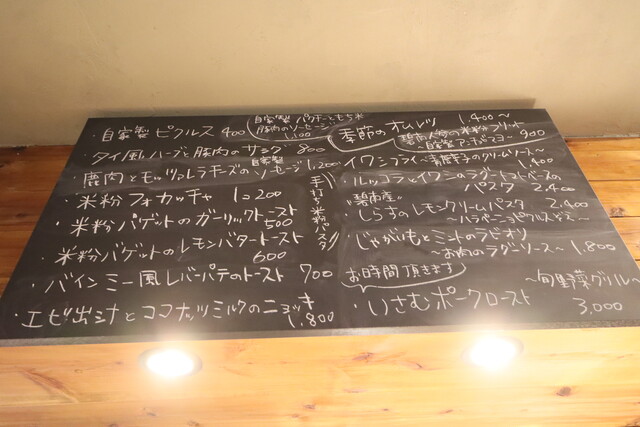 ・自家製ピクルス 400
自家製 パクチーともち米
豚肉のソーセージ
1,100
・タイ風ハーブと豚肉のサラダ 800
・鹿肉とモッツァレラチーズの自家製ソーセージ 1,200
・米粉フォカッチャ 1コ200
・米粉バゲットのガーリックトースト
500
・米粉バゲットのレモンバタートースト
600
・バインミー風レバーパテのトースト 700
・エビ出汁とココナッツミルクのニョッキ
1,800
手打ち米粉パスタ
季節のオムレツ 1,400〜
碧南人参の米粉フリット
〜自家製マヨ〜 900
イワシフライ〜青唐辛子のクリームソース〜
1,400
・ルッコラとイワシのラグートマトベースの
パスタ 2,400
"碧南産"
・しらすのレモンクリームパスタ 2,400
〜ハラペーニョピクルス添え〜
・じゃがいもとミントのラビオリ
〜お肉のラグーソース〜 1,800
お時間頂きます
・いさむポークロースト
〜旬野菜グリル〜
3,000